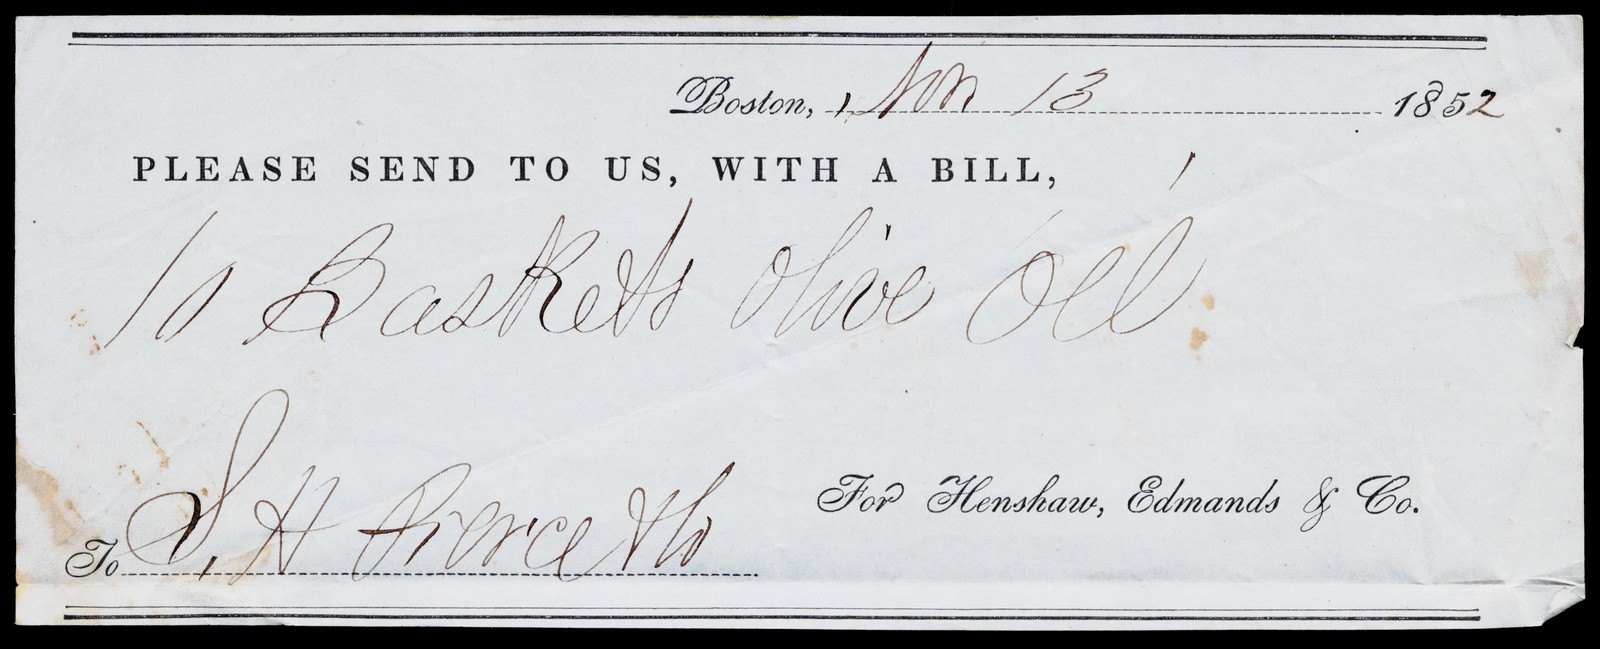 Boston, Nov 13 1852
PLEASE SEND TO US, WITH A BILL,
10 Baskets Olive Oil
For Henshaw, Edmands & Co.
To S. H Pierce & Co